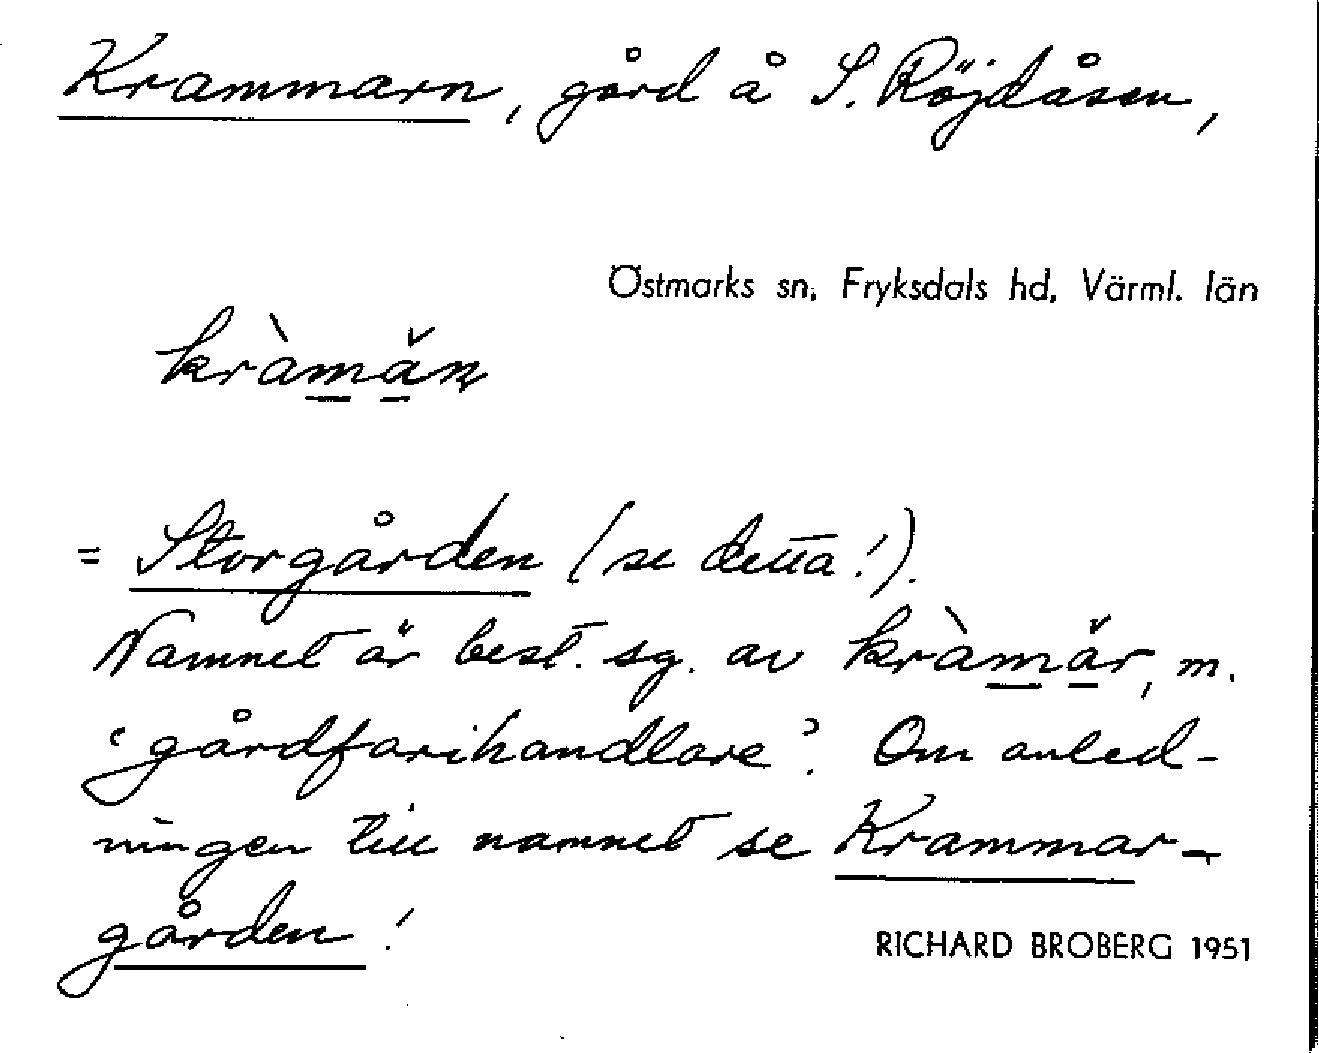 Krammarn, gård å S. Röjdåsen,
Östmarks sn, Fryksdals hd, Värml. län
kràmăn
= Storgården (se detta!).
Namnet är best. sg. av kràmăr, m.
'gårdfarihandlare'. Om anled-
ningen till namnet se Krammar-
gården!
RICHARD BROBERG 1951